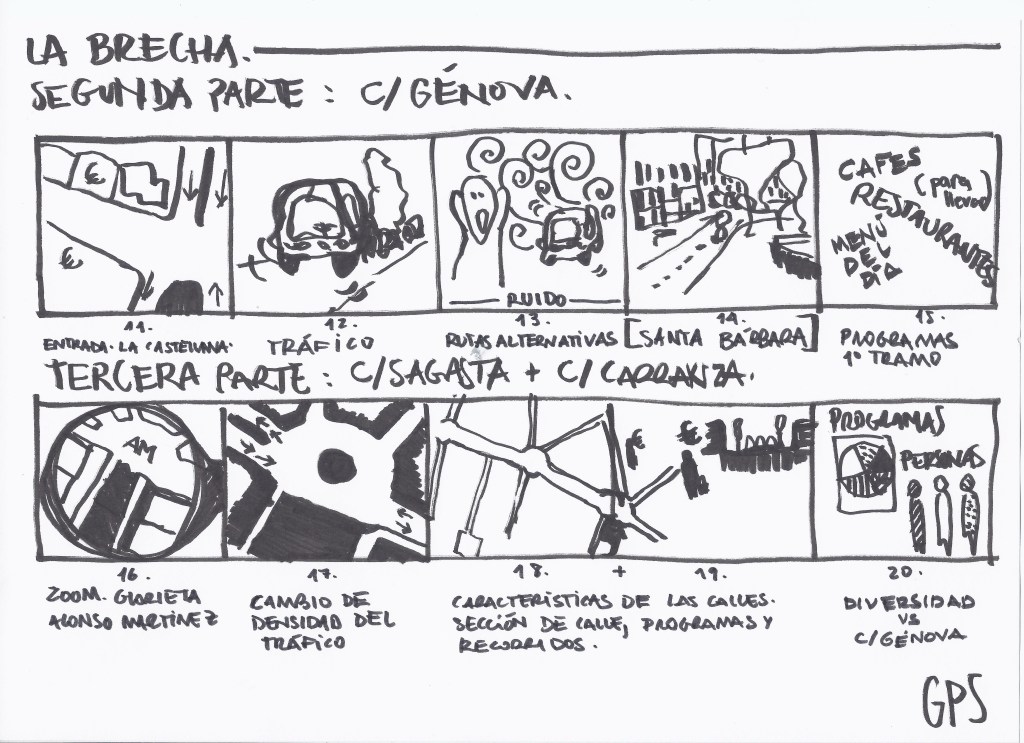 LA BRECHA.
SEGUNDA PARTE: C/GÉNOVA.
€
€
RUIDO
B
CAFES
(para llevar)
RESTAURANTES
MENÚ
DEL
DÍA
11.
ENTRADA. LA CASTELLANA.
12.
TRÁFICO
13.
RUTAS ALTERNATIVAS
14.
[SANTA BÁRBARA]
15.
PROGRAMAS
1º TRAMO
TERCERA PARTE: C/SAGASTA + C/CARRANZA.
AM
€
€
PROGRAMAS
PERSONAS
16.
ZOOM. GLORIETA
ALONSO MARTÍNEZ
17.
CAMBIO DE
DENSIDAD DEL
TRÁFICO
18. + 19.
CARACTERÍSTICAS DE LAS CALLES.
SECCIÓN DE CALLE, PROGRAMAS Y
RECORRIDOS.
20.
DIVERSIDAD
VS
C/GÉNOVA
GPS